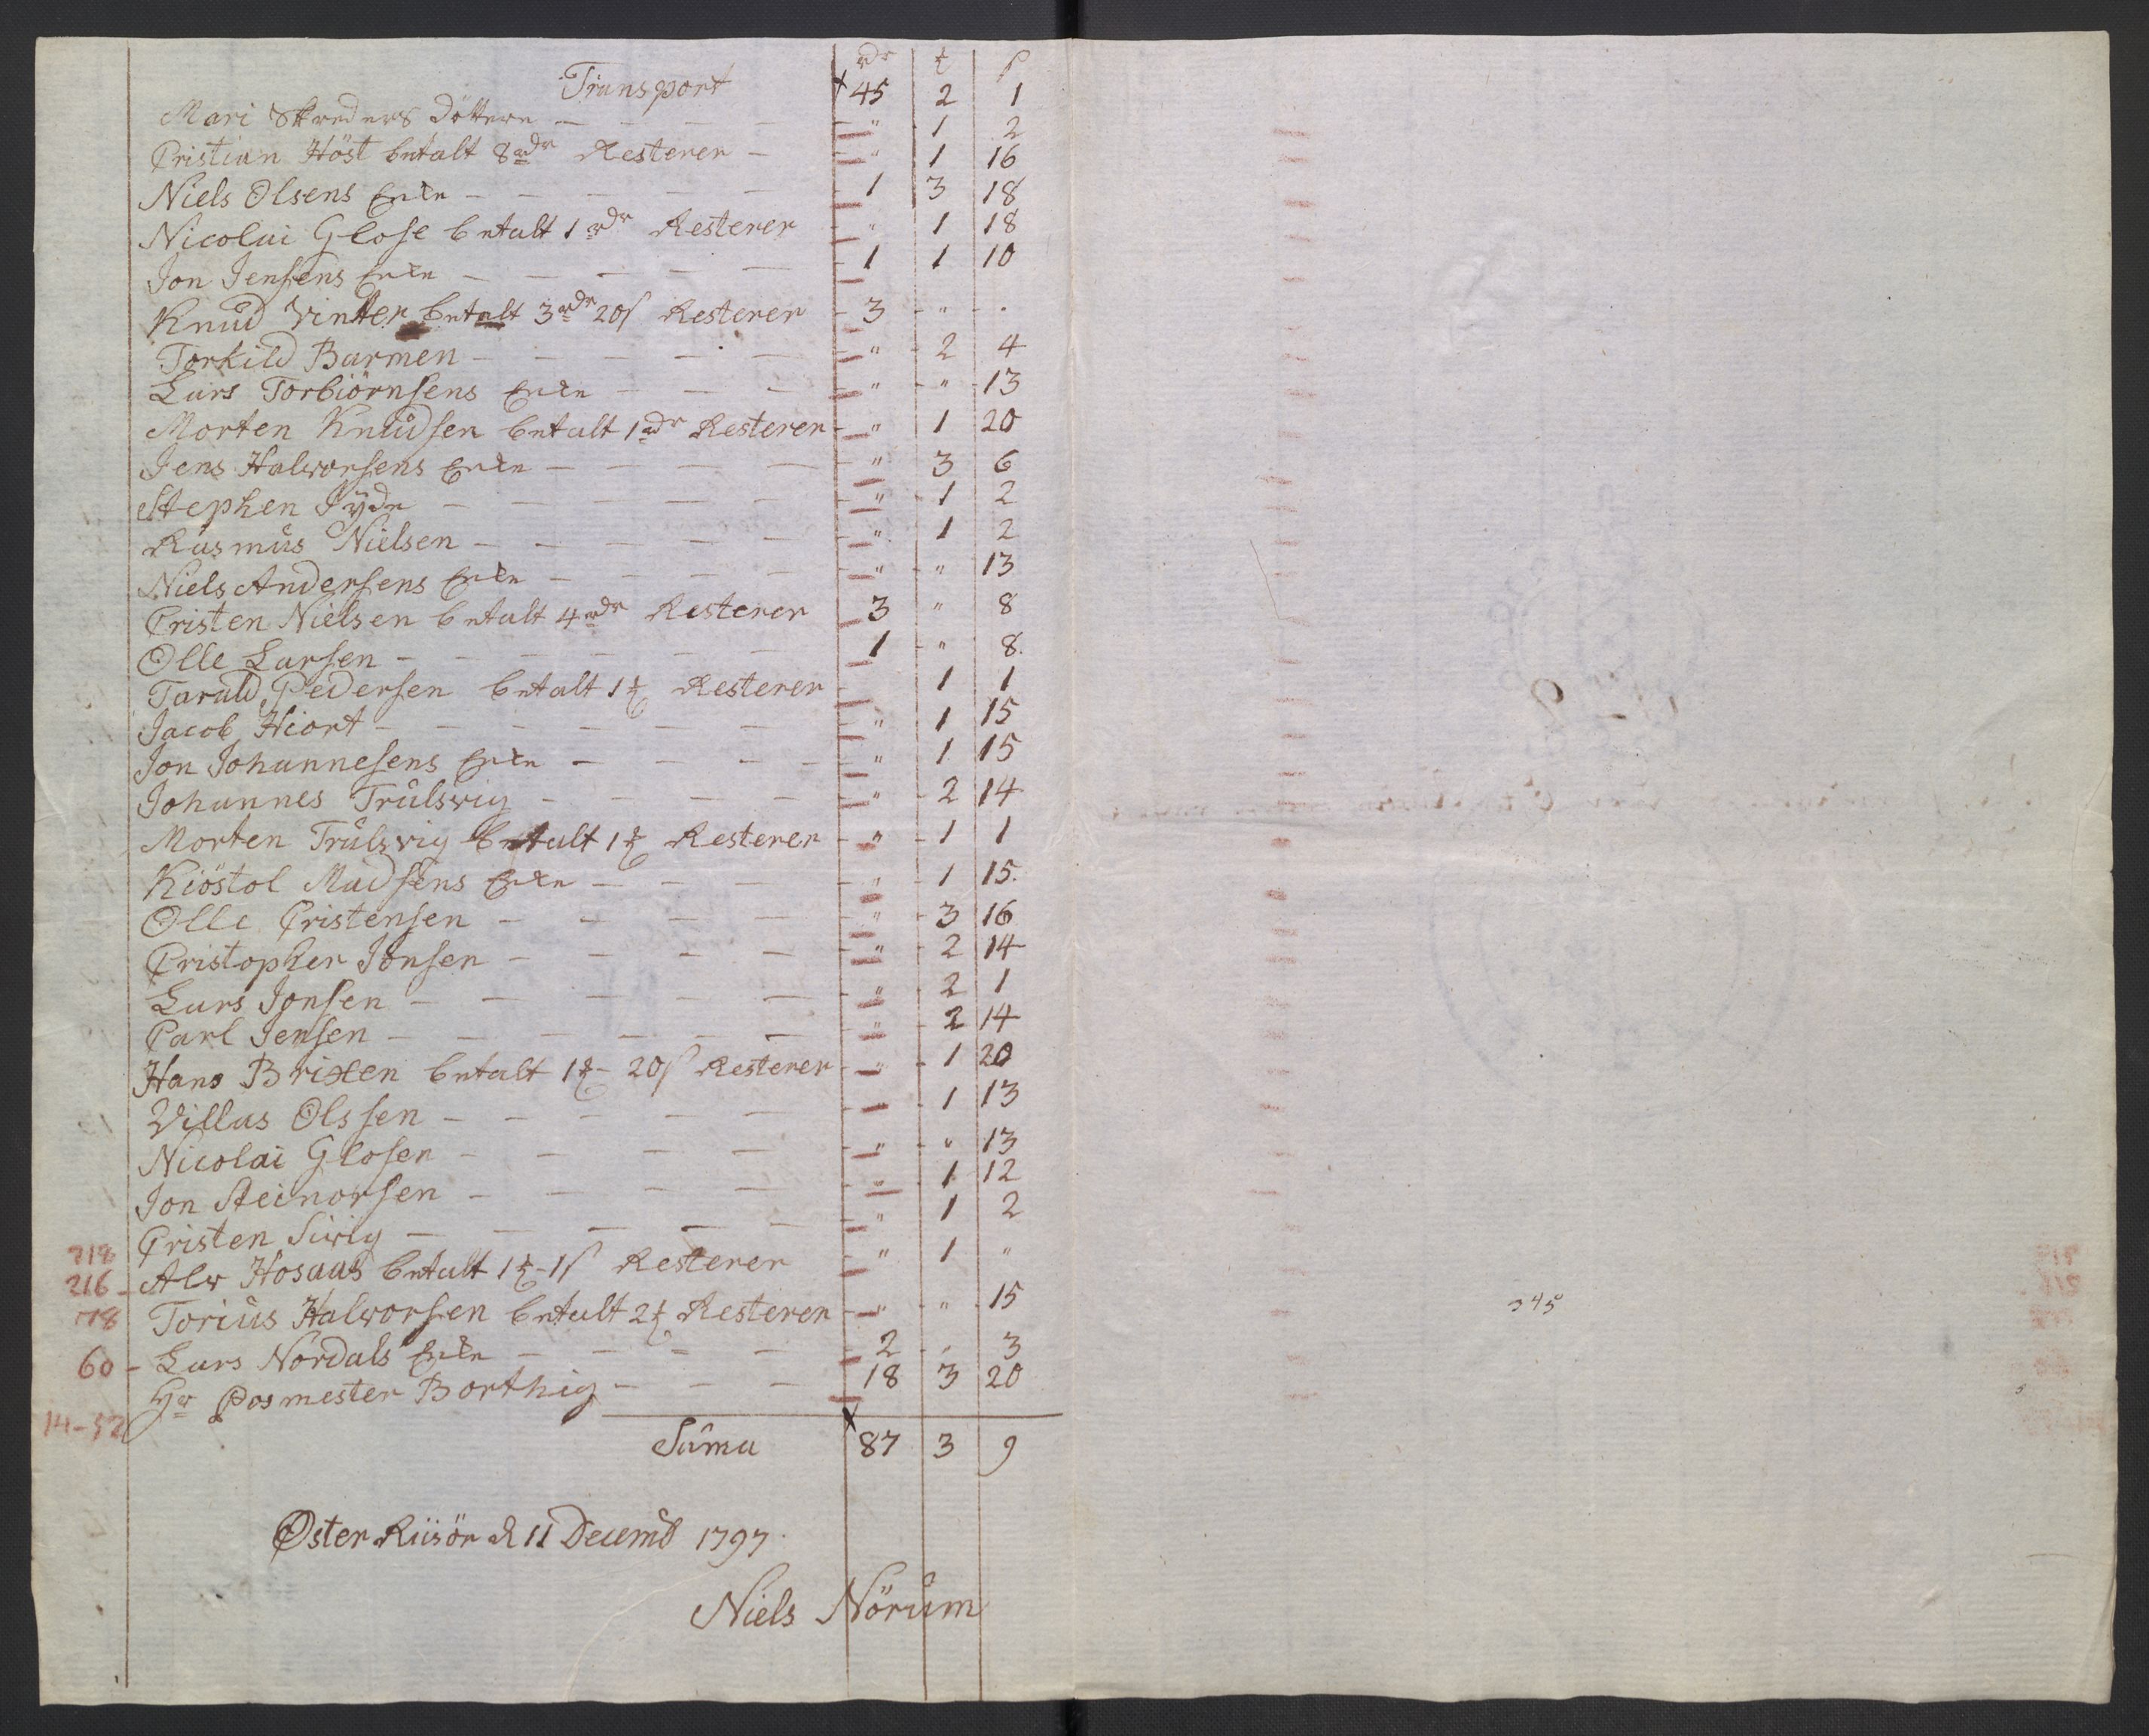 rdr ₰ ß
Transport 45 2 1
Mari Skreders Döttere — — — — " 1 2
Cristian Höst betalt 8 rdr Resterer — " 1 16
Niels Olsens Enke — — — — — 1 3 18
Nicolai Glose betalt 1 rdr Resterer " 1 18
Jon Jensens Enke — — — — — 1 1 10
Knud Vinter betalt 3 rdr 20 ß Resterer 3 " "
Torkild Barmen — — — — — " 2 4
Lars Torbiörnsens Enke — — — " " 13
Morten Knudsen betalt 1 rdr Resterer " 1 20
Jens Halvorsens Enke — — — — " 3 6
Stephen Jyde — — — — — " 1 2
Rasmus Nielsen — — — — — " 1 2
Niels Andersens Enke — — — — " " 13
Cristen Nielsen betalt 4 rdr Resterer 3 " 8
Olle Larsen — — — — — — 1 " 8
Tarald Pedersen betalt 1 ₰ Resterer 1 1
Jacob Hiort — — — — — — " 1 15
Jon Johannesens Enke — — — — " 1 15
Johannes Trulsvig — — — — " 2 14
Morten Trulsvig betalt 1 ₰ Resterer " 1 1
Kiöstol Madsens Enke — — — " 1 15
Olle Cristensen — — — — " 3 16
Cristopher Jonsen — — — — " 2 14
Lars Jonsen — — — — — " 2 1
Carl Jensen — — — — — — " 2 14
Hans Brixen betalt 1 ₰ — 20 ß Resterer " 1 20
Villas Olssen — — — — — 1 13
Nicolai Glosen — — — — " " 13
Jon Steinorsen — — — — " 1 12
Cristen Sivig — — — — — " 1 2
218
Alv Hosaas betalt 1 ₰ — 1 ß Resterer " 1 "
216
Torius Halvorsen betalt 2 ₰ Resterer " " 15
178
60 — Lars Nordals Enke — — — — 2 " 3
Hr Posmester Borthig — — — 18 3 20
14-52
Suma 87 3 9
Öster Riisör d 11 Decemb 1797.
Niels Nörum
345